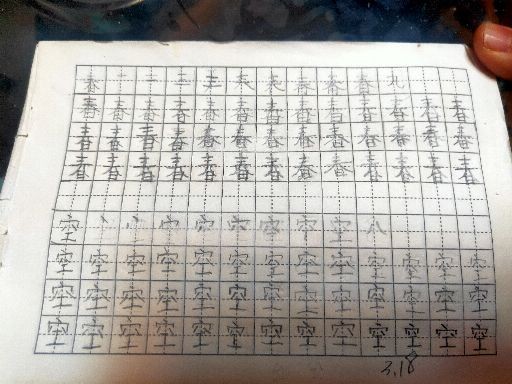 春 一 二 三 春 春 九
春 春 春 春 春 春 春 春 春 春 春 春
春 春 春 春 春 春 春 春 春 春 春 春 春
春 春 春 春 春 春 春 春 春 春 春 春 春
空 丶 空 空 八
空 空 空 空 空 空 空 空 空 空 空 空 空
空 空 空 空 空 空 空 空 空 空 空 空 空
空 空 空 空 空 空 空 空 空 空 空 空 空
3.18